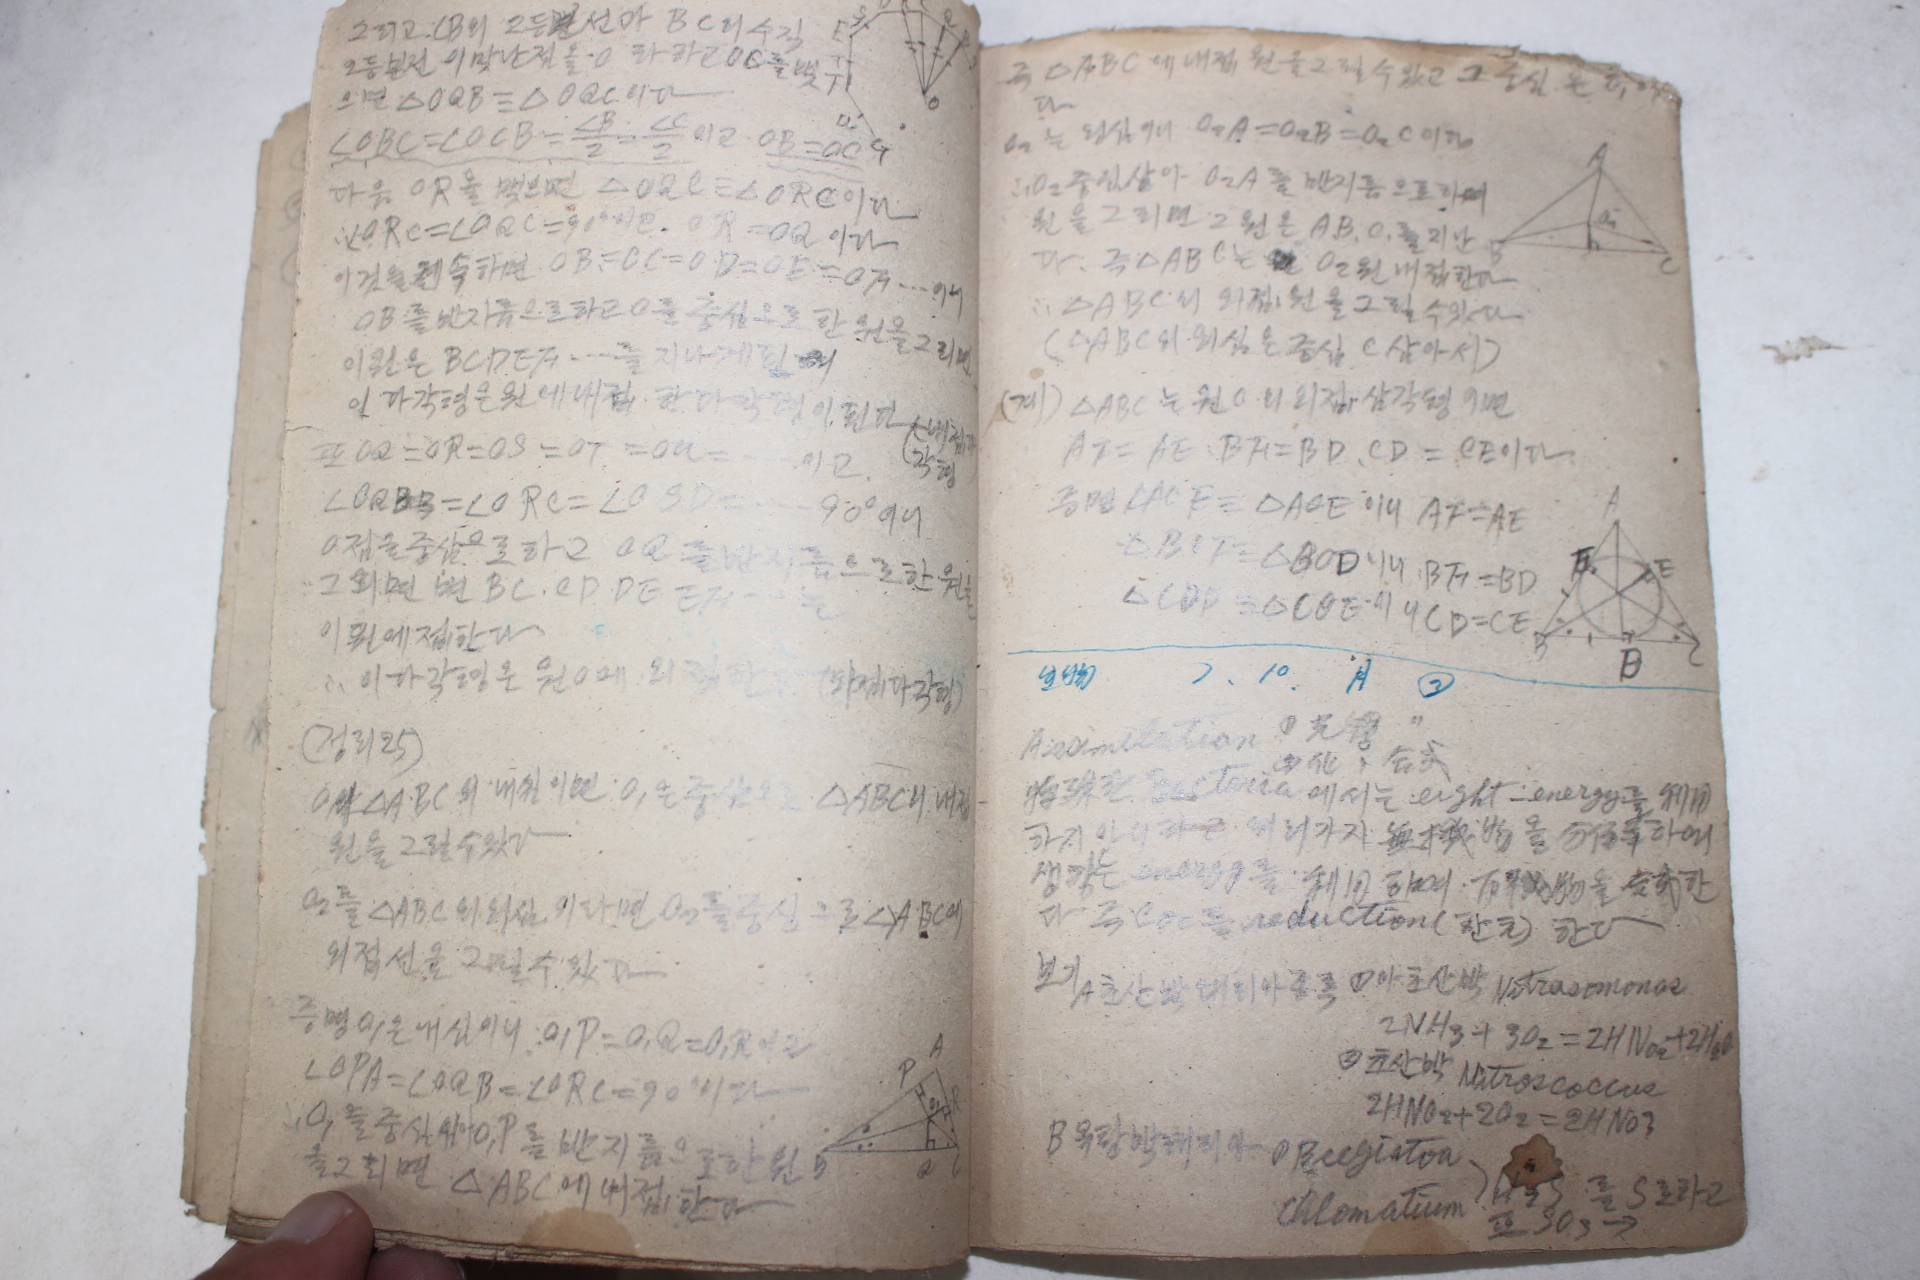 그리고 ∠B의 2등분선과 BC의 수직
2등분선이 맞난점을 O 라 하고 OC를 맺
으면 △OQB≡△OQC이다
∠OBC=∠OCB=∠B/2=∠C/2 이고 OB=OC
다음 OR을 맺으면 △OQC≡△ORC이다
∴∠ORC=∠OQC=90° OR=OQ 이다
이것을 계속하면 OB=OC=OD=OE=OF....이니
OB를 반지름으로하고 O를 중심으로 한 원을 그리면
이원은 BCDEF....를 지나게 된
이 다각형은 원에 내접한 다각형이 된다 (내접다각형
또 OQ=OR=OS=OT=OU=....이고
∠OQB=∠ORC=∠OSD=....90°이니
O점을 중심으로 하고 OQ를 반지름으로 한 원을
그리면 변 BC.CD.DE EF....는
이 원에 접한다
∴ 이 다각형은 원 O에 외접한 (외접다각형)
(정리25)
O₁이 △ABC의 내심이면 O₁은 중심으로 △ABC의 내접
원을 그릴 수 있다
O₂를 △ABC의 외심이라면 O₂를 중심으로 △ABC에
외접선을 그릴 수 있다
증명 O₁은 내심이니 O₁P=O₁Q=O₁R이고
∠OPA=∠OQB=∠ORC=90°이다
∴O₁를 중심삼아 O₁P를 반지름으로 한 원
을 그리면 △ABC에 내접한다
즉 △ABC에 내접원을 그릴 수 있고 그 중심은 O₁이
다
O₂는 외심이니 O₂A=O₂B=O₂C이다
∴O₂ 중심삼아 O₂A를 반지름으로하여
원을 그리면 그 원은 A B.C.를 지난
다. 즉 △ABC는 O₂원 내접한다
∴ △ABC의 외접원을 그릴 수 있다
(△ABC의 외심을 중심 삼아서)
(계) △ABC는 원O의 외접삼각형이면
AF=AE.BF=BD.CD=CE이다
증명 △AOF≡△AOE이니 AF=AE
△BOF≡△BOD이니 BF=BD
△COD≡△COE이니 CD=CE
생물 7. 10. A ②
Assimilation ①光 〃
②化 〃 合成
特殊한 Bacteria에서는 light energy를 利用
하지 아니하고 여러가지 無機物을 하여
생기는 energy를 利用하여 有機物을 合成한
다 즉 CO₂를 reduction(환元) 한다
보기 A초산박테리아 종류 ①아초산박 Nitrosomonas
2NH₃+3O₂=2HNO₂+2H₂O
②초산박 Nitroscoccus
2HNO₂+2O₂=2HNO₃
B 유황박테리아 ①Beegiatoa
Chlomatium
H₂S를 S로하고
또 SO₃→